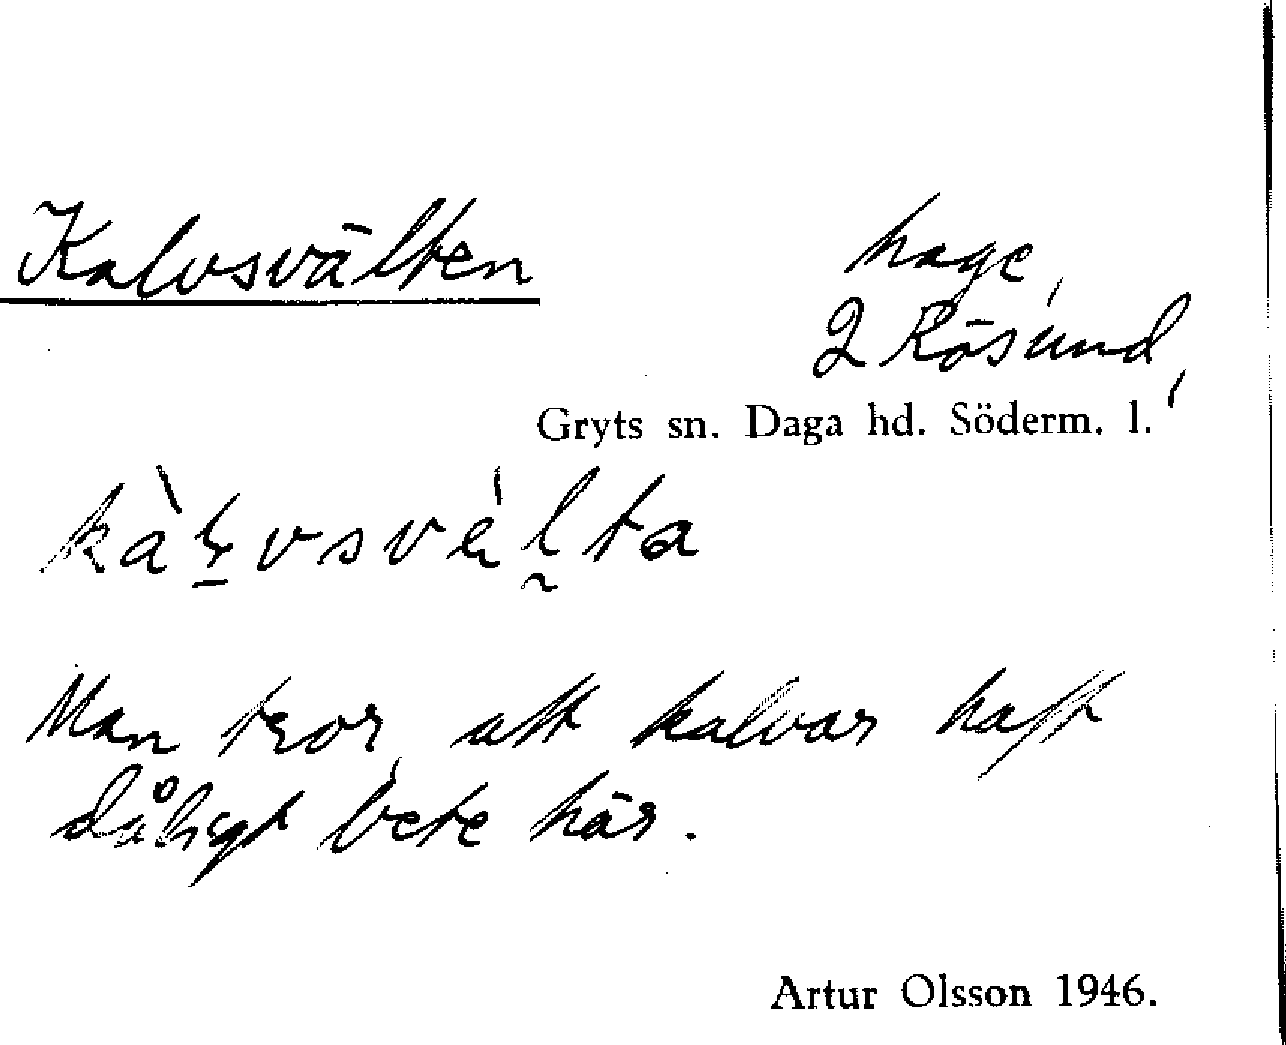 Kalvsvälten
hage,
2 Råsund,
Gryts sn. Daga hd. Söderm. l.
kàḷvsvä́l̰ta
Man tror, att kalvar haft
dåligt bete här.
Artur Olsson 1946.